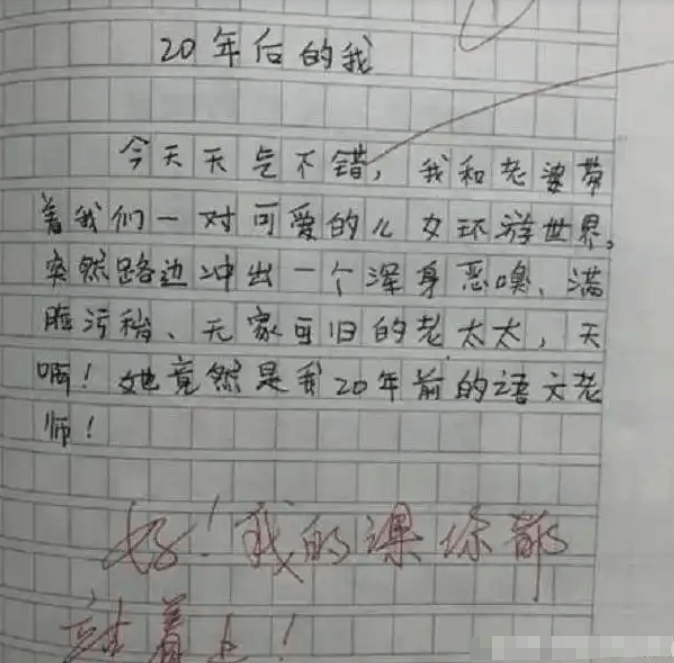 20年后的我
今天天气不错，我和老婆带
着我们一对可爱的儿女环游世界，
突然路边冲出一个浑身恶嗅、满
脸污秽、无家可旧的老太太，天
啊！她竟然是我20年前的语文老
师！
好！我的课你都
站着上！